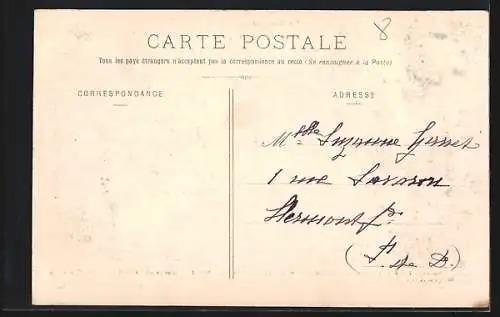 8
CARTE POSTALE
Tous les pays étrangers n'acceptent pas la correspondance au recto (Se renseigner à la Poste)
CORRESPONDANCE
ADRESSE
Mlle Suzanne
1 rue Savaron
Clermont Fd
(P. de D.)